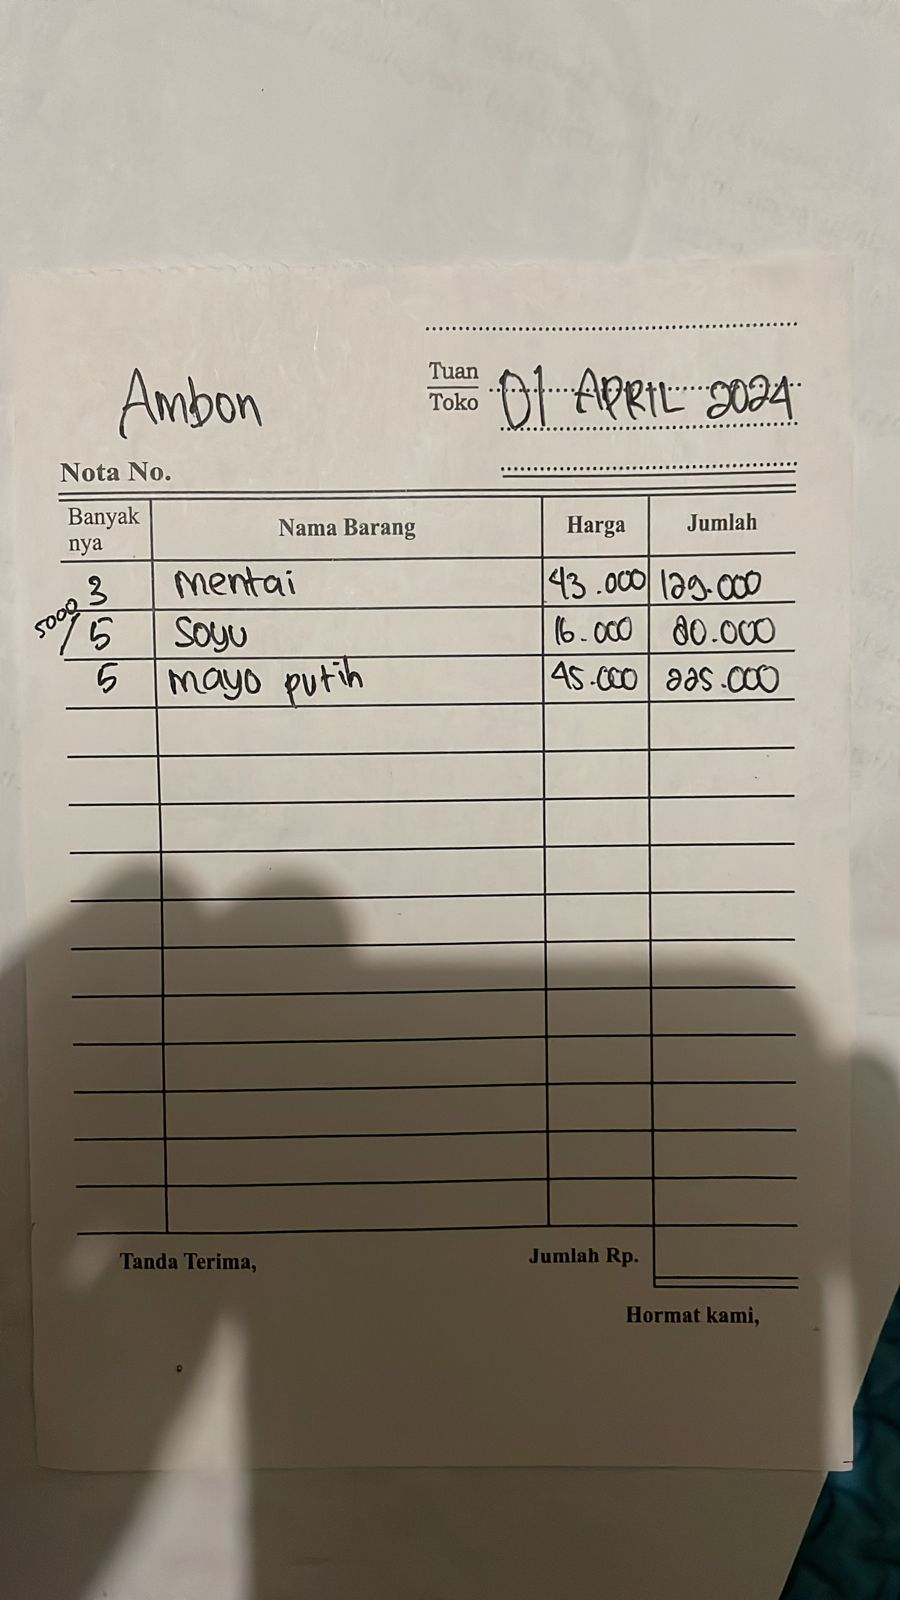 Ambon
Tuan
Toko
01 APRIL 2024
Nota No.
Banyak nya Nama Barang Harga Jumlah
3 mentai 43.000 129.000
5000/ 5 Soyu 16.000 80.000
5 mayo putih 45.000 225.000
Tanda Terima, Jumlah Rp.
Hormat kami,